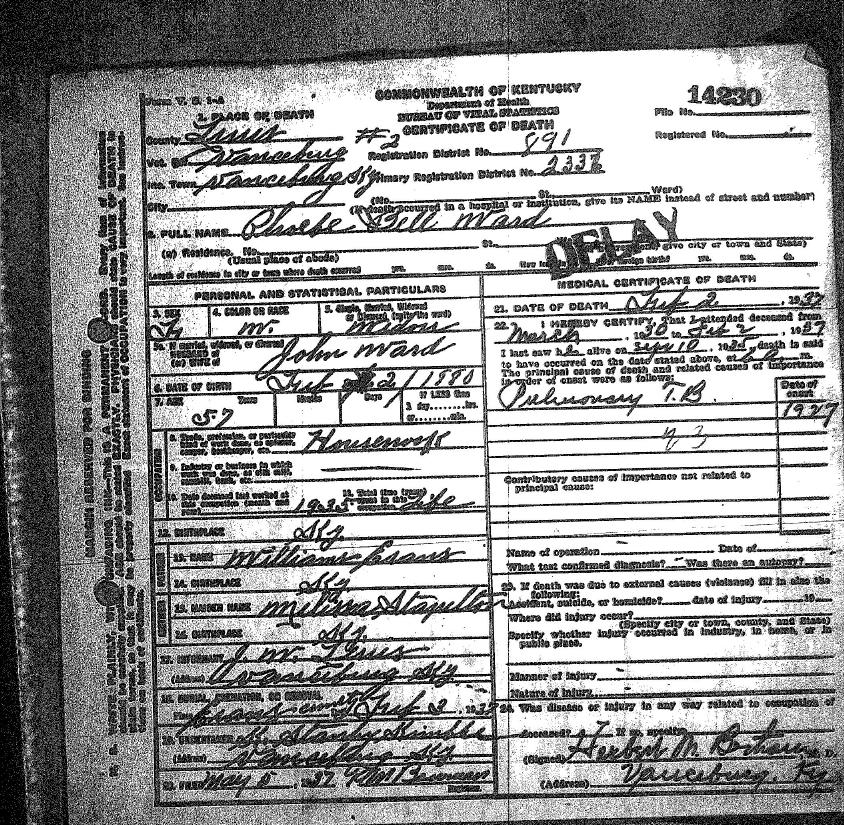 Form V. S. 1-A
COMMONWEALTH OF KENTUCKY
Department of Health
BUREAU OF VITAL STATISTICS
CERTIFICATE OF DEATH
14230
File No.
Registered No.
1. PLACE OF DEATH
County Lewis
#2
Vot. Vanceburg
Registration District No. 891
Inc. Town Vanceburg Ky
Primary Registration District No. 2337
City (No. St. Ward)
(If death occurred in a hospital or institution, give its NAME instead of street and number)
2. FULL NAME Phoebe Bell Ward
(a) Residence. No. St.
(Usual place of abode)
give city or town and State)
DELAY
Length of residence in city or town where death occurred yrs. mos. ds.
yrs. mos. ds.
PERSONAL AND STATISTICAL PARTICULARS
3. SEX
4. COLOR OR RACE W.
5. Single, Married, Widowed or Divorced (write the word) Widow
5a. If married, widowed, or divorced
HUSBAND of
(or) WIFE of John Ward
6. DATE OF BIRTH Feb 2 / 1880
7. AGE Years 57 Months Days If LESS than
1 day hrs.
or min.
OCCUPATION
8. Trade, profession, or particular
Housework
9. Industry or business in which
work was done,
10. Date deceased last worked at
this occupation (month and
year) 1935
11. Total time (years)
spent in this
occupation life
12. BIRTHPLACE Ky.
13. NAME William Evans
14. BIRTHPLACE Ky
15. MAIDEN NAME Melissa Stapelton
16. BIRTHPLACE Ky.
17. INFORMANT J. M. Lewis
(Address) Vanceburg Ky
18. BURIAL, CREMATION, OR REMOVAL
Evans Feb 3, 1937
19. UNDERTAKER Stanley Kimble
(Address) Vanceburg Ky.
20. FILED May 5, 37
Registrar.
MEDICAL CERTIFICATE OF DEATH
21. DATE OF DEATH Feb 2, 1937
22. I HEREBY CERTIFY, That I attended deceased from
March, 1930 to Feb 2, 1937
I last saw alive on Sept 10, death is said
to have occurred on the date stated above, at m.
The principal cause of death and related causes of importance
in order of onset were as follows:
Date of onset
Pulmonary T.B.
1927
23
Contributory causes of importance not related to
principal cause:
Name of operation Date of
What test confirmed diagnosis? Was there an autopsy?
23. If death was due to external causes (violence) fill in also the
following:
Accident, suicide, or homicide? date of injury 19
Where did injury occur?
(Specify city or town, county, and State)
Specify whether injury occurred in industry, in home, or in
public place.
Manner of injury
Nature of injury
24. Was disease or injury in any way related to occupation of
deceased? If so specify
(Signed) Herbert M. M. D.
(Address) Vanceburg, Ky
MARGIN RESERVED FOR BINDING